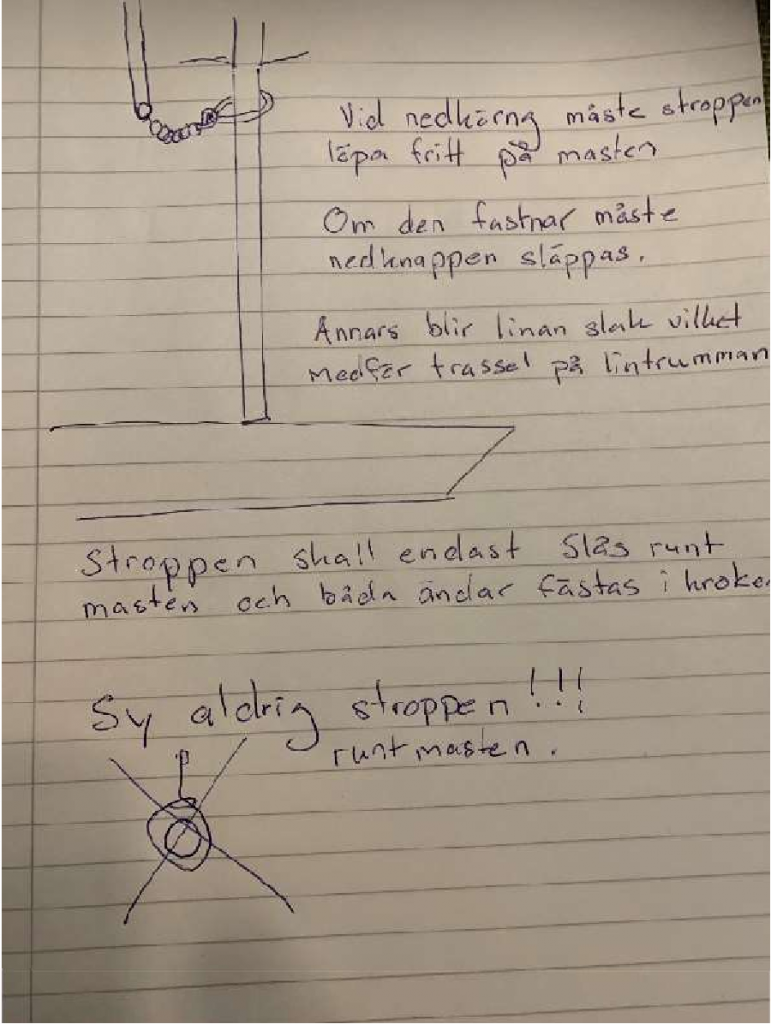 Vid nedkörng måste stroppen
löpa fritt på masten
Om den fastnar måste
nedknappen släppas.
Annars blir linan slak vilket
medför trassel på lintrumman
Stroppen skall endast slås runt
masten och båda ändar fästas i kroken
Sy aldrig stroppen!!!
runt masten.